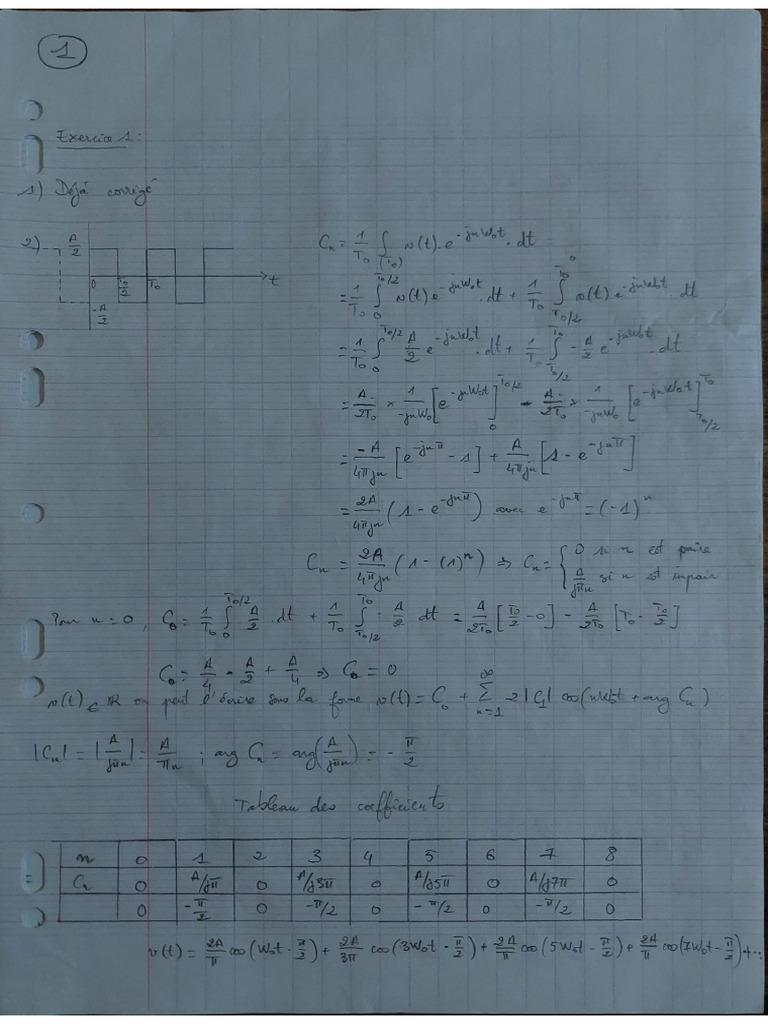 1
Exercice 1:
1) Déjà corrigé
2) A/2 0 T₀/2 T₀ t -A/2
Cₙ = 1/T₀ ∫_(T₀) v(t).e^(-jnW₀t).dt
= 1/T₀ ∫_0^(T₀/2) v(t) e^(-jnW₀t).dt + 1/T₀ ∫_(T₀/2)^(T₀) v(t) e^(-jnW₀t) dt
= 1/T₀ ∫_0^(T₀/2) A/2 e^(-jnW₀t).dt + 1/T₀ ∫_(T₀/2)^(T₀) -A/2 e^(-jnW₀t).dt
= A/2T₀ × 1/-jnW₀ [e^(-jnW₀t)]_0^(T₀/2) - A/2T₀ × 1/-jnW₀ [e^(-jnW₀t)]_(T₀/2)^(T₀)
= -A/4πjn [e^(-jnπ) - 1] + A/4πjn [1 - e^(-jnπ)]
= 2A/4πjn (1 - e^(-jnπ)) avec e^(-jnπ) = (-1)^n
Cₙ = 2A/4πjn (1 - (1)^n) ⇒ Cₙ = { 0 si n est paire
A/jπn si n est impair
Pour n = 0, C₀ = 1/T₀ ∫_0^(T₀/2) A/2 .dt + 1/T₀ ∫_(T₀/2)^(T₀) -A/2 dt = A/2T₀ [T₀/2 - 0] - A/2T₀ [T₀ - T₀/2]
C₀ = A/4 - A/2 + A/4 ⇒ C₀ = 0
v(t) ∈ ℝ on peut l'écrire sous la forme v(t) = C₀ + ∑_(n=1)^∞ 2|C₁| cos(nW₀t + arg Cₙ)
|Cₙ| = |A/jπn| = A/πn ; arg Cₙ = arg(A/jπn) = -π/2
Tableau des coefficients
n 0 1 2 3 4 5 6 7 8
= Cₙ 0 A/jπ 0 A/j3π 0 A/j5π 0 A/j7π 0
0 -π/2 0 -π/2 0 -π/2 0 -π/2 0
v(t) = 2A/π cos(W₀t - π/2) + 2A/3π cos(3W₀t - π/2) + 2A/π cos(5W₀t - π/2) + 2A/π cos(7W₀t - π/2) + ...